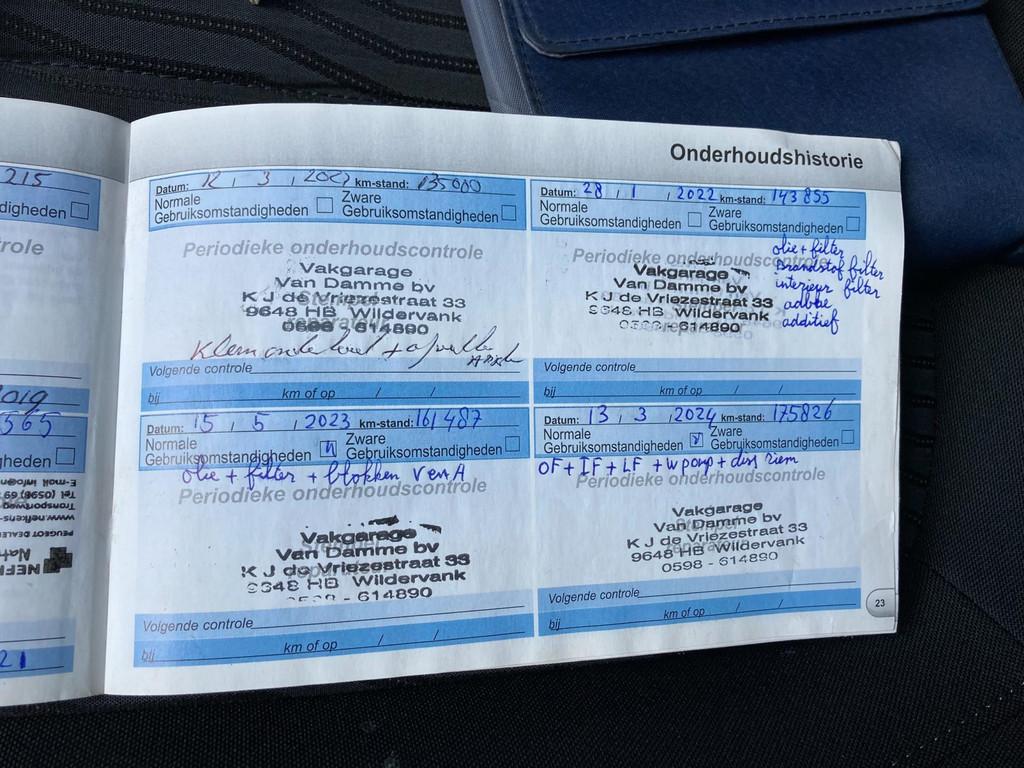 Onderhoudshistorie
215
digheden
role
019
565
gheden
E-mail info@n
Tel (0598) 69
Transportweg
www.nefkens-
PEUGEOT DEALER
NEF
21
Datum: 12 / 3 / 2021 km-stand: 135000
Normale Gebruiksomstandigheden
Zware Gebruiksomstandigheden
Periodieke onderhoudscontrole
Vakgarage
Van Damme bv
K J de Vriezestraat 33
9648 HB Wildervank
0598 - 614890
Klein onderhoud +
Volgende controle
bij km of op / /
Datum: 28 / 1 / 2022 km-stand: 143855
Normale Gebruiksomstandigheden
Zware Gebruiksomstandigheden
olie + filter
Brandstof filter
interieur filter
adblue
additief
Periodieke onderhoudscontrole
Vakgarage
Van Damme bv
K J de Vriezestraat 33
9648 HB Wildervank
0598 - 614890
Volgende controle
bij km of op / /
Datum: 15 / 5 / 2023 km-stand: 161487
Normale Gebruiksomstandigheden
Zware Gebruiksomstandigheden
olie + filter + blokken
Periodieke onderhoudscontrole
Vakgarage
Van Damme bv
K J de Vriezestraat 33
9648 HB Wildervank
0598 - 614890
Volgende controle
bij km of op / /
Datum: 13 / 3 / 2024 km-stand: 175826
Normale Gebruiksomstandigheden
Zware Gebruiksomstandigheden
OF + IF + LF + w pomp + dist riem
Periodieke onderhoudscontrole
Vakgarage
Van Damme bv
K J de Vriezestraat 33
9648 HB Wildervank
0598 - 614890
Volgende controle
bij km of op / /
23